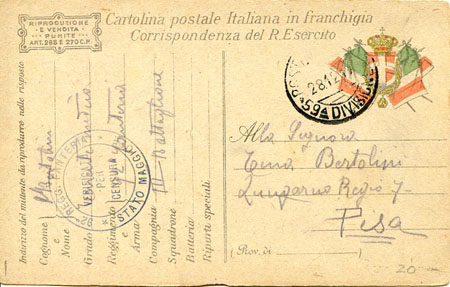 RIPRODUZIONE
E VENDITA
PUNITE
ART. 285 E 270 C.P.
Cartolina postale Italiana in franchigia
Corrispondenza del R. Esercito
POSTA
28.12.17
59ª DIVISIONE
Alla Signora
Enna Bertolini
Lungarno Regio 7-
Pisa
(Prov. di )
20
Indirizzo del mittente da riprodurre nelle risposte
Cognome Bertolini
e
Nome
Grado
Reggimento Fanteria
e
Arma
Compagnia III Battaglione
Squadrone
Batteria
Riparti speciali
REGG. FANTERIA
VERIFICATO
PER
CENSURA
STATO MAGGIORE